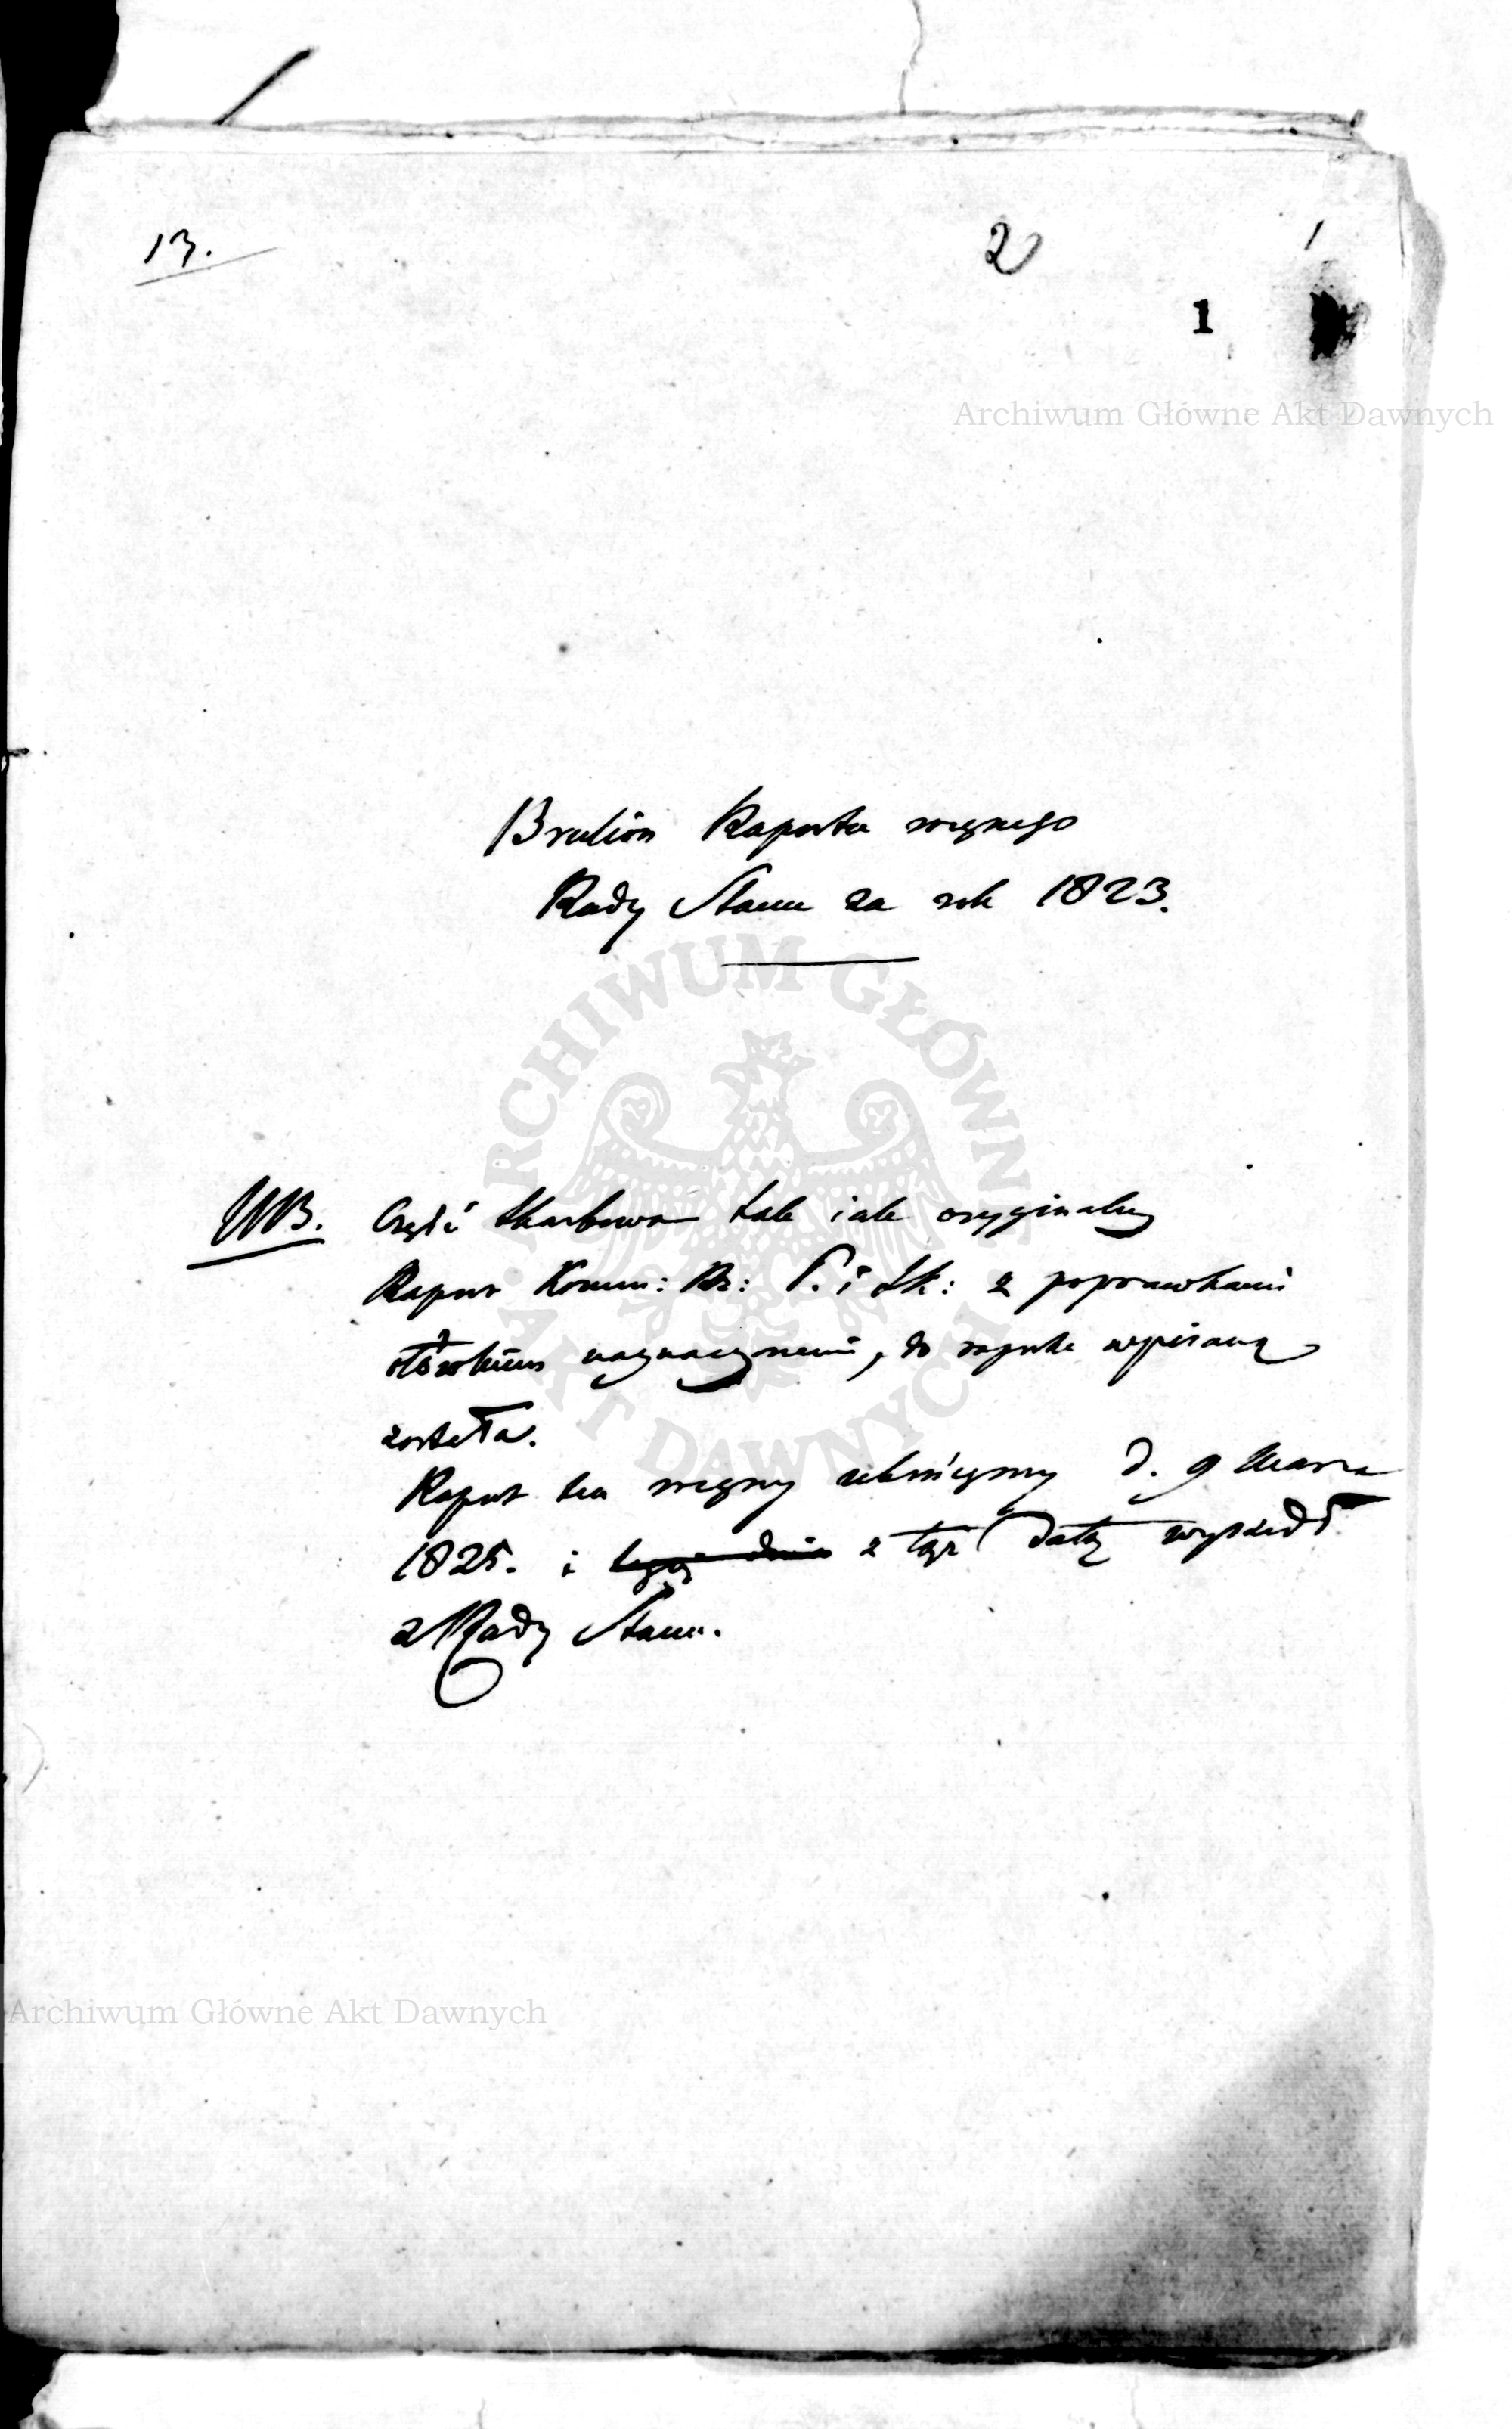 13.
2
1
1
Archiwum Główne Akt Dawnych
Brulion Raportu rocznego
Rady Stanu za rok 1823.
ARCHIWUM GŁÓWNE AKT DAWNYCH
NB. Część Skarbowa tak iak oryginalny
Raport Komm: Rz: P. i Sk: z poprawkami
ołówkiem naznaczonemi, do raportu wpisaną
została.
Raport ten roczny ukończony d. 9 Marca
1825. i z tąż datą wyszedł
z Rady Stanu.
Archiwum Główne Akt Dawnych